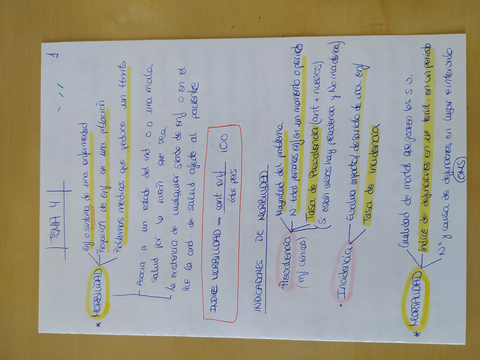 TEMA 4
1
* MORBILIDAD
Ef/ o síntoma de una enfermedad
Proporción de enf/ en una población
Problemas médicos que produce un tto
Asocia a un estado del ind o a una mala
salud por la razón que sea
la existencia de cualquier forma de enf/ o en el
que la cond de salud afecte al paciente
INDICE MORBILIDAD = cant enf/ 100
total pers
INDICADORES DE MORBILIDAD
Prevalencia
(enf crónicas)
Magnitud del problema
Nº total personas enf/ en un momento o periodo
Tasa de Prevalencia (ant + nuevos)
(si existen casos hay prevalencia y No incidencia)
• Incidencia
Evalua impacto/ desarrollo de una enf/
Tasa de Incidencia
* MORTALIDAD
Cualidad de mortal que poseen los s.v.
Indice de defunciones en un territ. en un periodo
Nº y causa de defunciones en lugar e intervalo
(OMS)